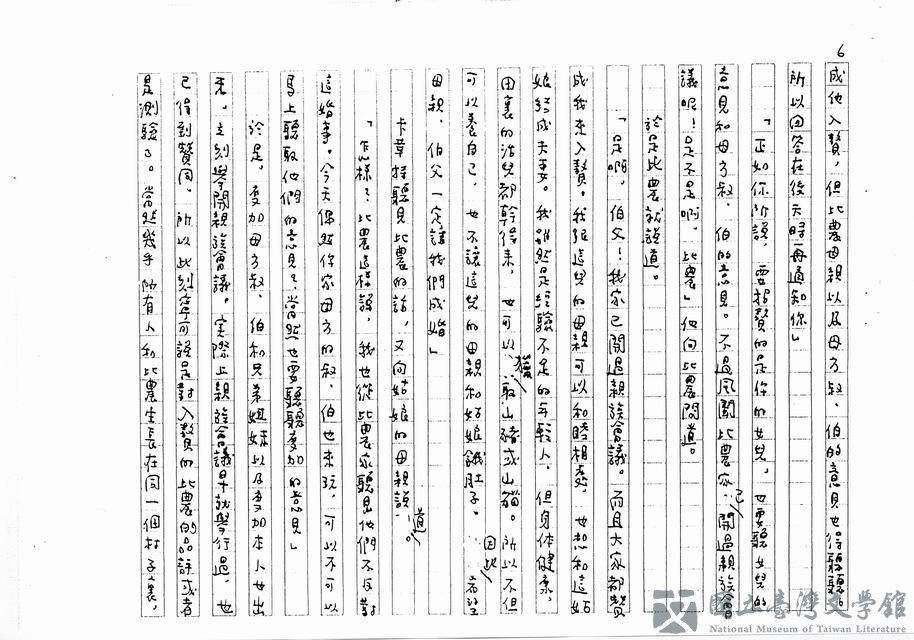 6
成他入贅，但比農母親以及母方叔、伯的意見也得聽聽。
所以回答在後天時再通知你」
「正如你所說，要招贅的是你的女兒，也要聽女兒的
意見和母方叔、伯的意見。不過風聞比農家已開過親族會
議呢！是不是啊，比農」他向比農問道。
於是比農就說道。
「是啊，伯父！我家已開過親族會議。而且大家都贊
成我來入贅。我跟這兒的母親可以和睦相處，也想和這姑
娘結成夫妻。我雖然是經驗不足的年輕人，但身體健康，
田裏的活兒都幹得來，也可以獵取山豬或山貓。所以不但
可以養自己，也不讓這兒的母親和姑娘餓肚子。因此希望
母親、伯父一定讓我們成婚」
卡草特聽見比農的話，又向姑娘的母親說道。
「怎樣？比農這樣說，我也從比農家聽見他們不反對
這婚事。今天偶然你家母方的叔、伯也來玩，可以不可以
馬上聽取他們的意見？當然也要聽聽麥加的意見」
於是，麥加母方叔、伯和兄弟姐妹以及麥加本人也出
來，立刻舉開親族會議。實際上親族會議早就舉行過，也
已得到贊同，所以此刻寧可說是對入贅的比農的品評或者
是測驗了。當然幾乎所有人和比農生長在同一個村子裏，
國立臺灣文學館
National Museum of Taiwan Literature